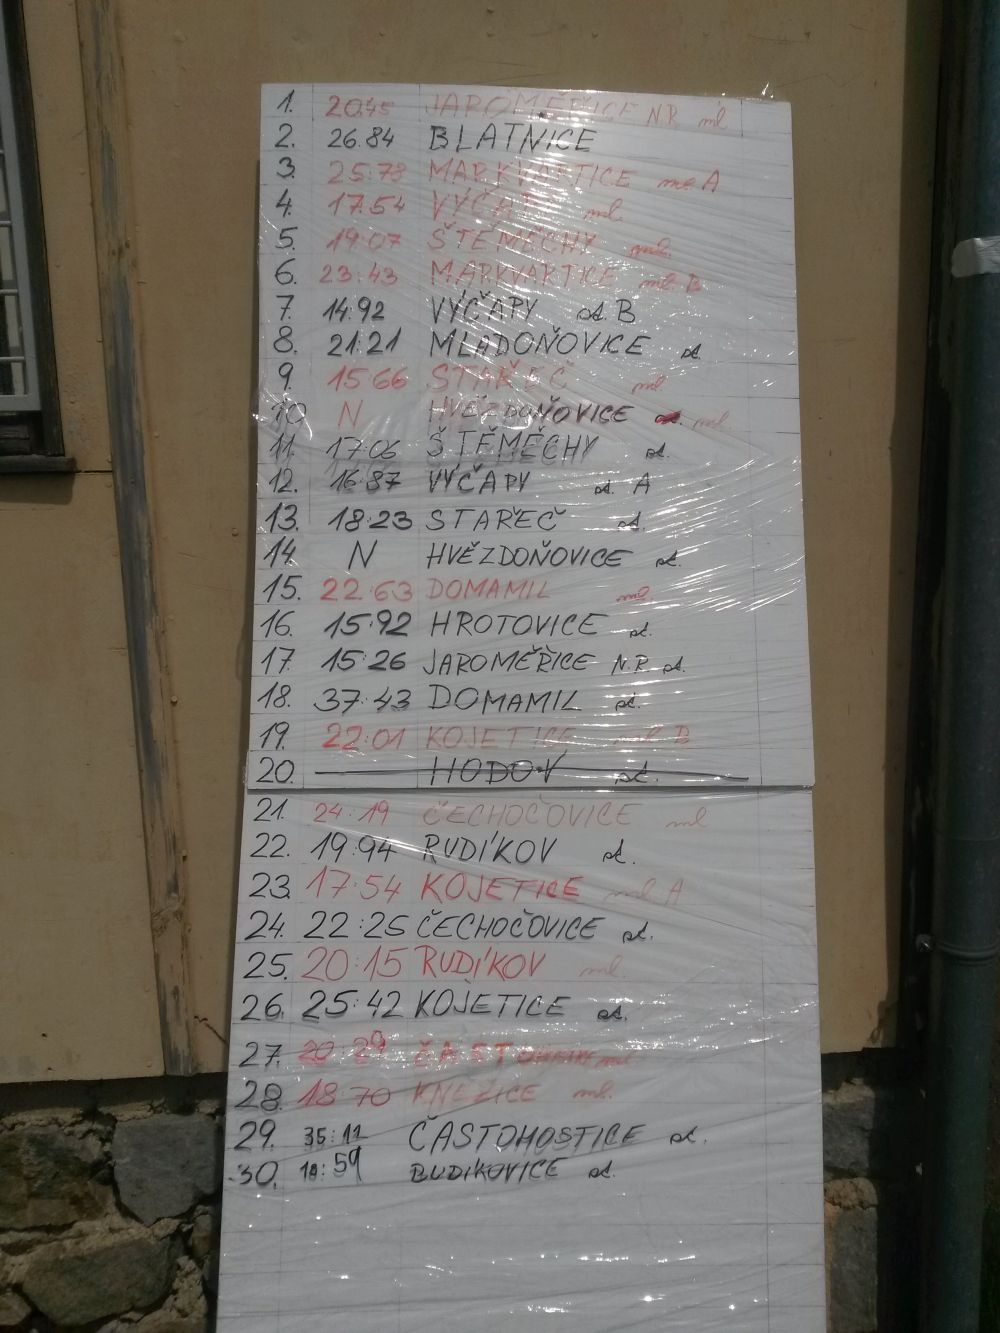 1. 20:45 JAROMĚŘICE N.R. ml
2. 26.84 BLATNICE
3. 25:78 MARKVARTICE ml. A
4. 17:54 VÝČAPY ml.
5. 19:07 ŠTĚMĚCHY ml.
6. 23:43 MARKVARTICE ml. B
7. 14:92 VÝČAPY st. B
8. 21:21 MLADOŇOVICE st.
9. 15:66 STAŘEČ ml.
10 N HVĚZDOŇOVICE ml.
11. 17:06 ŠTĚMĚCHY st.
12. 16:87 VÝČAPY st. A
13. 18:23 STAŘEČ st.
14. N HVĚZDOŇOVICE st.
15. 22:63 DOMAMIL ml.
16. 15:92 HROTOVICE st.
17. 15:26 JAROMĚŘICE N.R. st.
18. 37:43 DOMAMIL st.
19. 22:01 KOJETICE ml. B
20. HODOV st.
21. 24:19 ČECHOČOVICE ml
22. 19:94 RUDÍKOV st.
23. 17:54 KOJETICE ml. A
24. 22:25 ČECHOČOVICE st.
25. 20:15 RUDÍKOV ml.
26. 25:42 KOJETICE st.
27. 29 ml
28. 18:70 KNĚŽICE ml.
29. 35:11 ČASTOHOSTICE st.
30. 18:59 st.